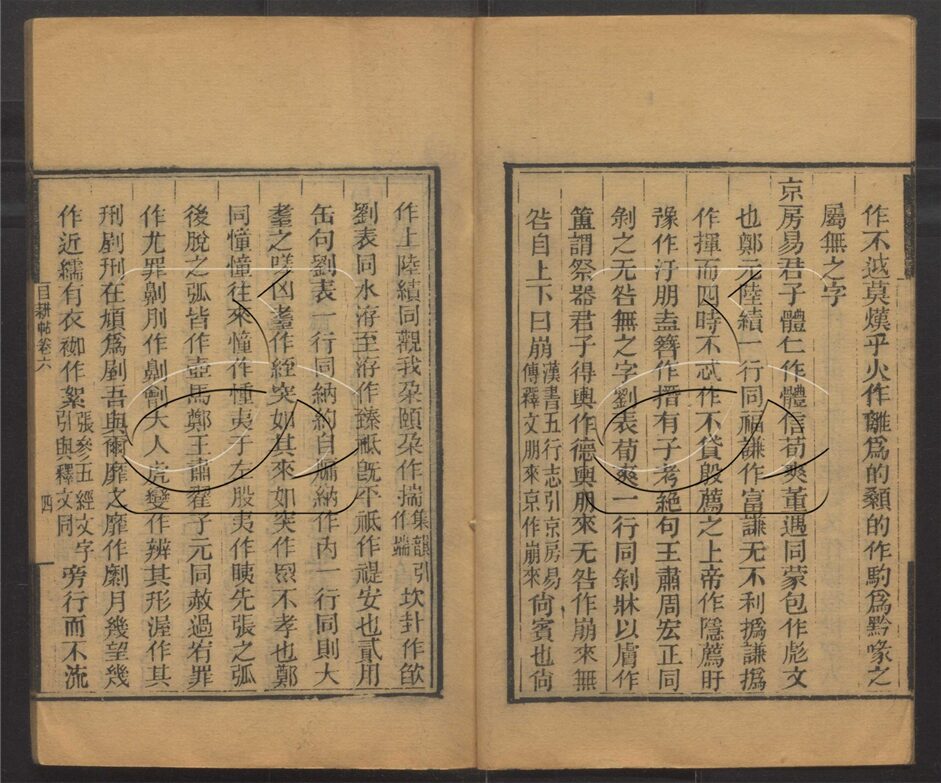 作不䟆莫熯乎火作離爲的顙的作駒爲黔喙之
屬無之字
京房易君子體仁作體信荀爽董遇同蒙包作彪文
也鄭元陸績一行同福謙作富謙无不利撝謙撝
作揮而四時不忒作不貸殷薦之上帝作隱薦盱
豫作汙朋盍簪作撍有子考絕句王肅周宏正同
剝之无咎無之字劉表荀爽一行同剝牀以膚作
簠謂祭器君子得輿作德輿朋來无咎作崩來無
咎自上下曰崩漢書五行志引京房易
傳釋文朋來京作崩來尙賓也尙
作上陸績同觀我朶頤朶作揣集韻引
作㙐坎卦作欿
劉表同水洊至洊作臻祗旣平祗作禔安也貳用
缶句劉表一行同納約自牖納作内一行同則大
耋之嗟凶耋作絰突如其來如突作㐬不孝也鄭
同憧憧往來憧作㤝夷于左股夷作眱先張之弧
後脫之弧皆作壺馬鄭王肅翟子元同赦過宥罪
作尤罪劓刖作劓劊大人虎變作辨其形渥作其
刑剭刑在頄爲剭吾與爾靡之靡作劘月幾望幾
作近繻有衣袽作絮張參五經文字
引與釋文同旁行而不流
目耕帖卷六
四